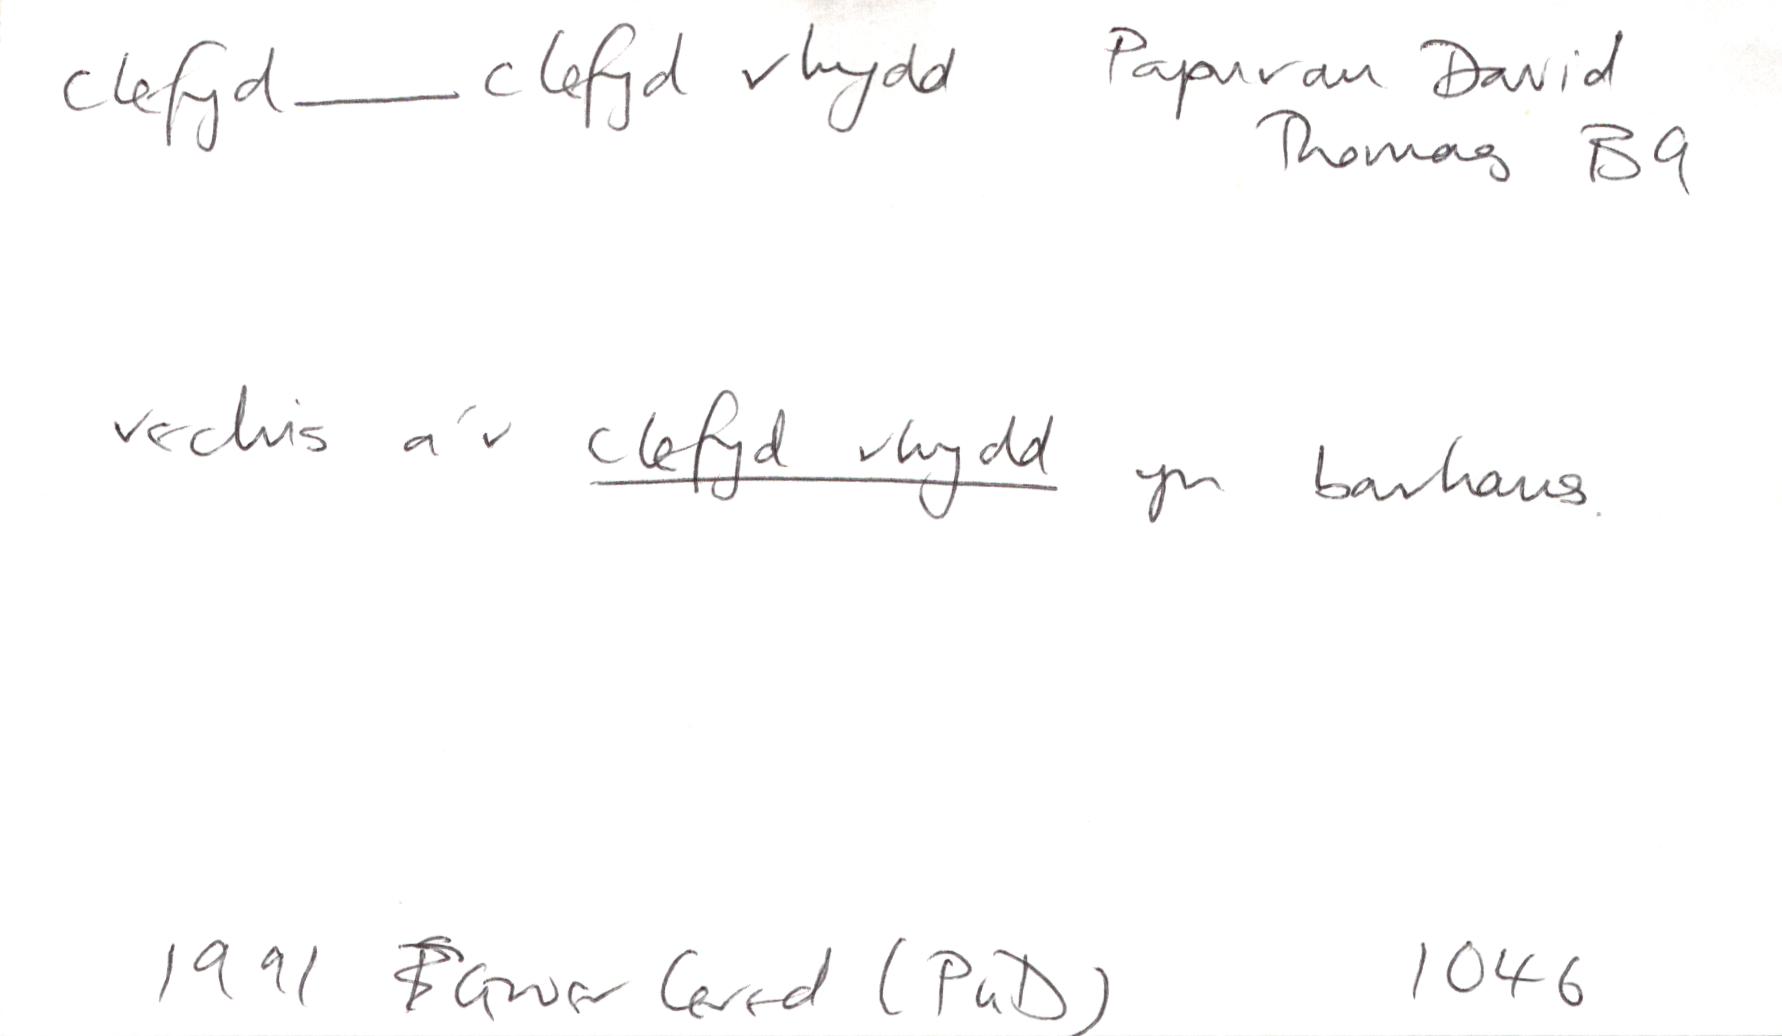 clefyd___clefyd rhydd Papurau David
Thomas B9
rechis a'r clefyd rhydd yn barhaus.
1991 Gwer Cered (PhD) 1046